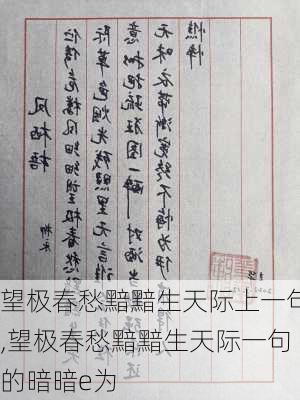 凤栖梧 柳永
伫倚危楼风细细望极春愁
际草色烟光残照里无言谁
意拟把疏狂图一醉对酒当
无味衣带渐宽终不悔为伊
憔悴
望极春愁黯黯生天际上一句
,望极春愁黯黯生天际一句
的暗暗e为